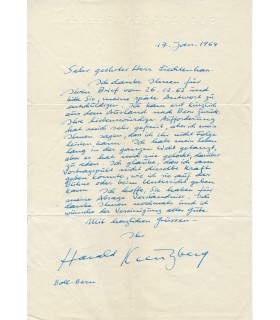 17. Jan. 1964
Sehr geehrter Herr Liechtenhan
Ich danke Ihnen für
Ihren Brief vom 26.12.63 und
bitte Sie, meine späte Antwort zu
entschuldigen. Ich kam erst kürzlich
aus dem Ausland nach Bern zurück.
Ihre liebenswürdige Aufforderung
hat mich sehr gefreut, aber ich muss
Ihnen sagen, dass ich ihr nicht Folge
leisten kann. Ich habe mein Leben
lang in der ganzen Welt getanzt,
aber es hat mich nie gelockt, darüber
zu reden. Ich glaube, dass ich dem
Vortragspult nicht dieselbe Kraft
geben könnte, wie ich sie auf der
Bühne oder beim Unterricht geben
kann. Ich hoffe, Sie haben für
meine Absage Verständnis. Ich
danke Ihnen nochmals und ich
wünsche der Vereinigung alles Gute.
Mit herzlichen Grüssen
Ihr
Harald Kreutzberg
Bern